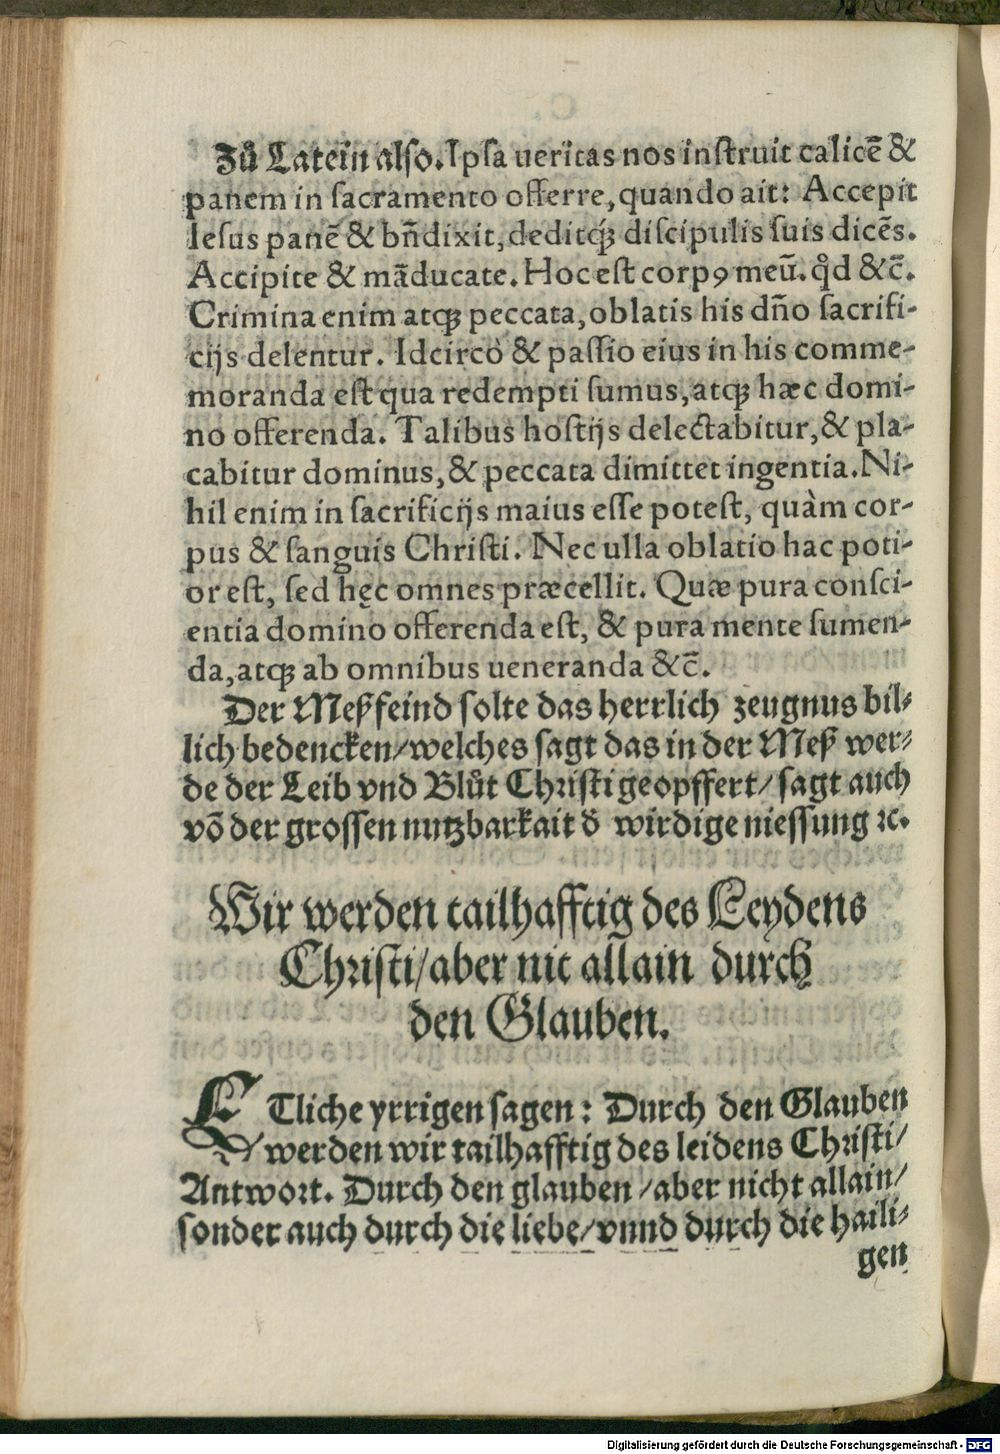 Zů Latein also. Ipsa ueritas nos instruit calicē &
panem in sacramento offerre, quando ait: Accepit
Iesus panē & bñdixit, deditq; discipulis suis dicēs.
Accipite & mãducate. Hoc est corpꝯ meū. qd̛ &c̄.
Crimina enim atq; peccata, oblatis his dño sacrifi-
cijs delentur. Idcirco & passio eius in his comme-
moranda est qua redempti sumus, atq; hæc domi-
no offerenda. Talibus hostijs delectabitur, & pla-
cabitur dominus, & peccata dimittet ingentia. Ni-
hil enim in sacrificijs maius esse potest, quàm cor-
pus & sanguis Christi. Nec ulla oblatio hac poti-
or est, sed hęc omnes præcellit. Quæ pura consci-
entia domino offerenda est, & pura mente sumen-
da, atq; ab omnibus ueneranda &c̄.
Der Meßfeind solte das herrlich zeugnus bil-
lich bedencken/welches sagt das in der Meß wer-
de der Leib vnd Blůt Christi geopffert/ sagt auch
võ der grossen nutzbarkait d̄ wirdige niessung ꝛc.
Wir werden tailhafftig des Leydens
Christi/aber nit allain durch
den Glauben.
ETliche yrrigen sagen: Durch den Glauben
werden wir tailhafftig des leidens Christi/
Antwort. Durch den glauben/aber nicht allain/
sonder auch durch die liebe/vnnd durch die haili-
gen
Digitalisierung gefördert durch die Deutsche Forschungsgemeinschaft - DFG